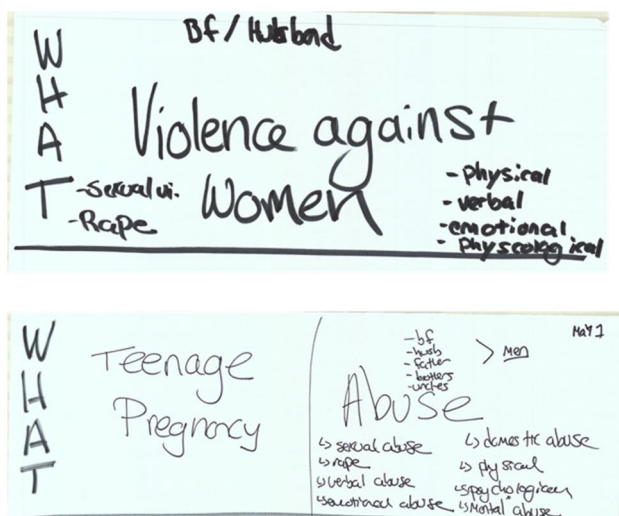 WHAT
Bf / Husband
Violence against
Women
- sexual vi.
- Rape
- physical
- verbal
- emotional
- physcological
WHAT
Teenage
Pregnancy
May 1
- bf
- husb
- father
- brothers
- uncles
> Men
Abuse
↳ sexual abuse
↳ rape
↳ verbal abuse
↳ emotional abuse
↳ domestic abuse
↳ physical
↳ psychological
↳ Mental abuse